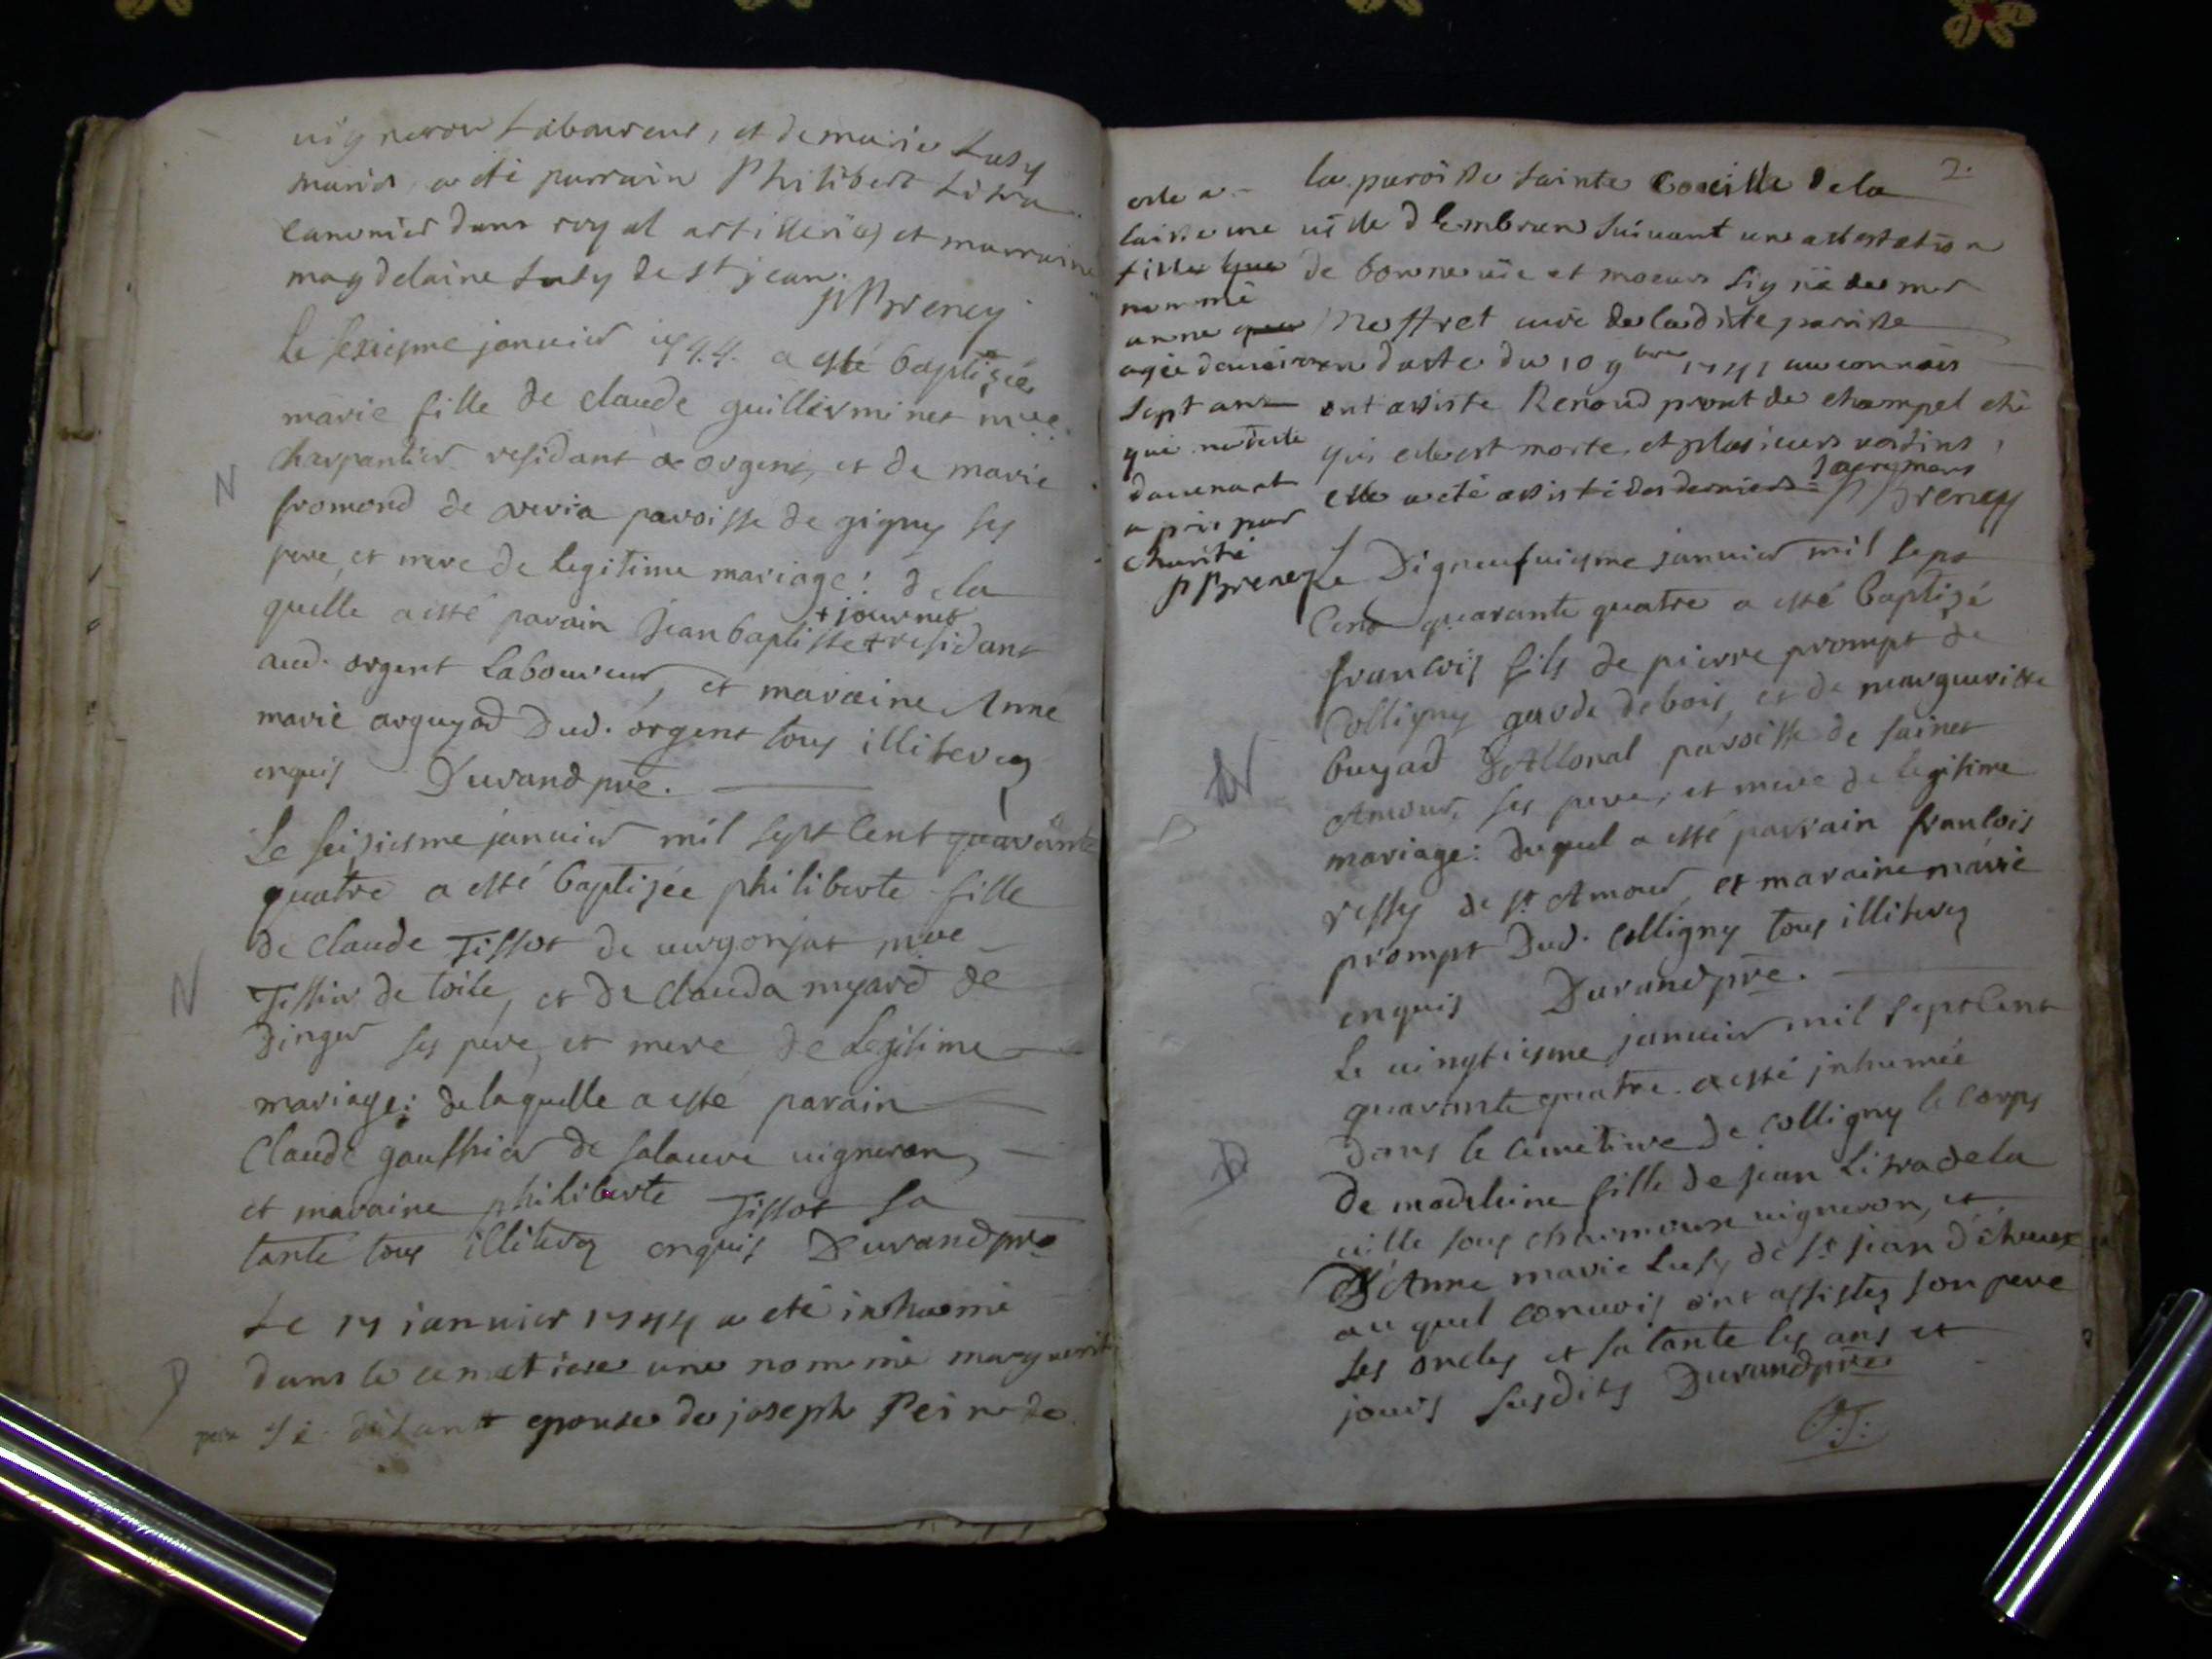 vigneron Laboureur, et de marie Lusy
mariés, a été parrain Philibert Litra
canonier dans royal artillerie et marraine
magdelaine Lusy de st jean. PBreney
Le sexiesme janvier 1744. a esté baptizée
marie fille de claude guillerminet mre
charpantier residant a orgent, et de marie
fromond de averia paroisse de gigny ses
pere, et mere de legitime mariage: de la
quelle a esté parain jean baptiste + residant
+ journet
aud. orgent Laboureur, et maraine Anne
marie arguyod Dud. orgent tous illiterez
enquis Durand pre.
Le seiziesme janvier mil sept cent quarante
quatre a esté baptizée philiberte fille
de Claude Tissot de vergonjat mre
Tissier de toile, et de Clauda myard de
Dinger ses pere, et mere de Legitime
mariage: de laquelle a esté parain
Claude gauthier de salavre vigneron,
et maraine philiberte Tissot sa
tante tous illiterez enquis Durand pre
Le 17 janvier 1744 a eté inhumé
dans le cemetiere une nommé marguerite
si disant epouse de joseph Peinede
N
N
D
2.
la paroisse sainte Coecille de la
ville d'Embrun suivant une attestation
de bonne vie et moeurs signé de mr
Neffret curé de la dite paroisse
en datte du 10 9bre 1741 au convois
ont assisté Renaud pront de champel ché
qui elle est morte, et plusieurs voisins,
elle a eté assisté des derniers sacremens
PBreney
elle a
laissé une
fille que
nommé
anne
agée d'environ
sept ans
que
davenant
a pris par
charité
PBreney
Le Digneufviesme janvier mil sept
Cent quarante quatre a esté baptizé
francois fils de pierre prompt de
Colligny garde de bois, et de margueritte
buyad D'Allonal paroisse de sainct
Amour, ses pere, et mere de legitime
mariage: duquel a esté parrain francois
ressy de st Amour, et maraine marie
prompt Dud. Colligny tous illiterez
enquis Durand pre.
Le vingtiesme janvier mil sept Cent
quarante quatre a esté inhumée
dans le cimetiere de colligny le corps
de madeleine fille de jean Litra de la
ville sous charmoux vigneron, et
D'Anne marie Lusy de st jean d'étreux
au quel convois ont assistez son pere
ses oncles et sa tante les ans et
jours susdits Durand pre
N
D